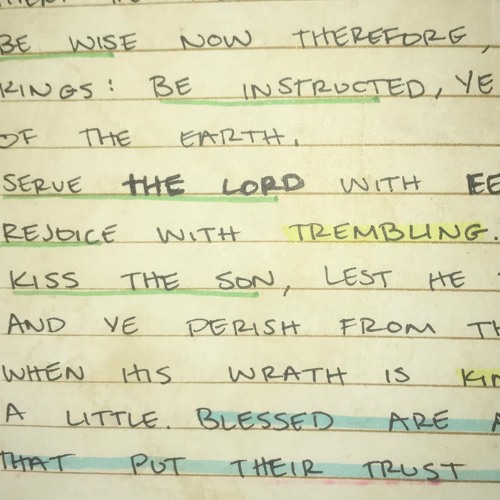 BE WISE NOW THEREFORE,
KINGS: BE INSTRUCTED, YE
OF THE EARTH.
SERVE THE LORD WITH
REJOICE WITH TREMBLING.
KISS THE SON, LEST HE
AND YE PERISH FROM TH
WHEN HIS WRATH IS KIN
A LITTLE. BLESSED ARE A
THAT PUT THEIR TRUST